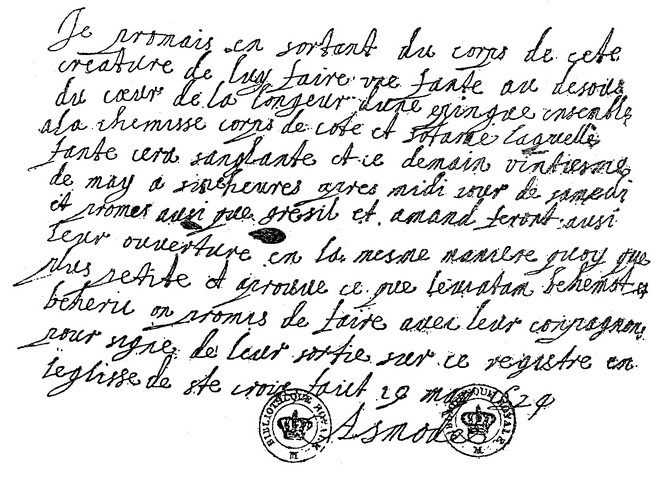 Je promais en sortant du corps de cete
creature de luy faire vne fante au desous
du cœur de la longeur dune epingue ensemble
a la chemisse corps de cote et sotane laquelle
fante cera sanglante et ce demain vintiesme
de may a sincheures apres midi iour de samedi
et promes ausi que gresil et amand feront ausi
leur ouverture en la mesme maniere quoy que
plus petite et aprouve ce que leuiatam behemot
beherie on promis de faire avec leur conpagnons
pour signe de leur sortie sur ce registre en
leglisse de ste croix faict 19 may 1629
Asmodee
BIBLIOTHEQUE ROYALE